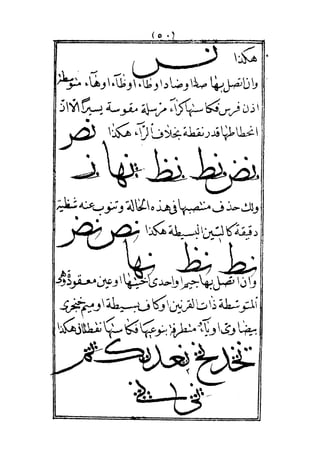 (٥٠)
هكذا نر
وان اتصل بها صاد او ضاد او طاء او ظاء او هاء متوسطة
اذن فرس فكاسنها كراء مرسلة مقوسة يسيرا الا ان
انحطاطها قدر نقطة بخلاف الراء هكذا نصر
نض نط نظ نها نر
ولك حذف منتصبها فى هذه الحالة وتنوب عنه شظية
دقيقة كالسين البسيطة هكذا نص نض
نط نظ نها
وان اتصل بها جيم او احدى اختيها او عين معقودة
المتوسطة ذات القرنين او كاف بسيطة او ميم
بيضاوى او ياء متطرفة بنوعيها فكاسنها نقطتان هكذا
نخد نخ نعد نك نم
نى